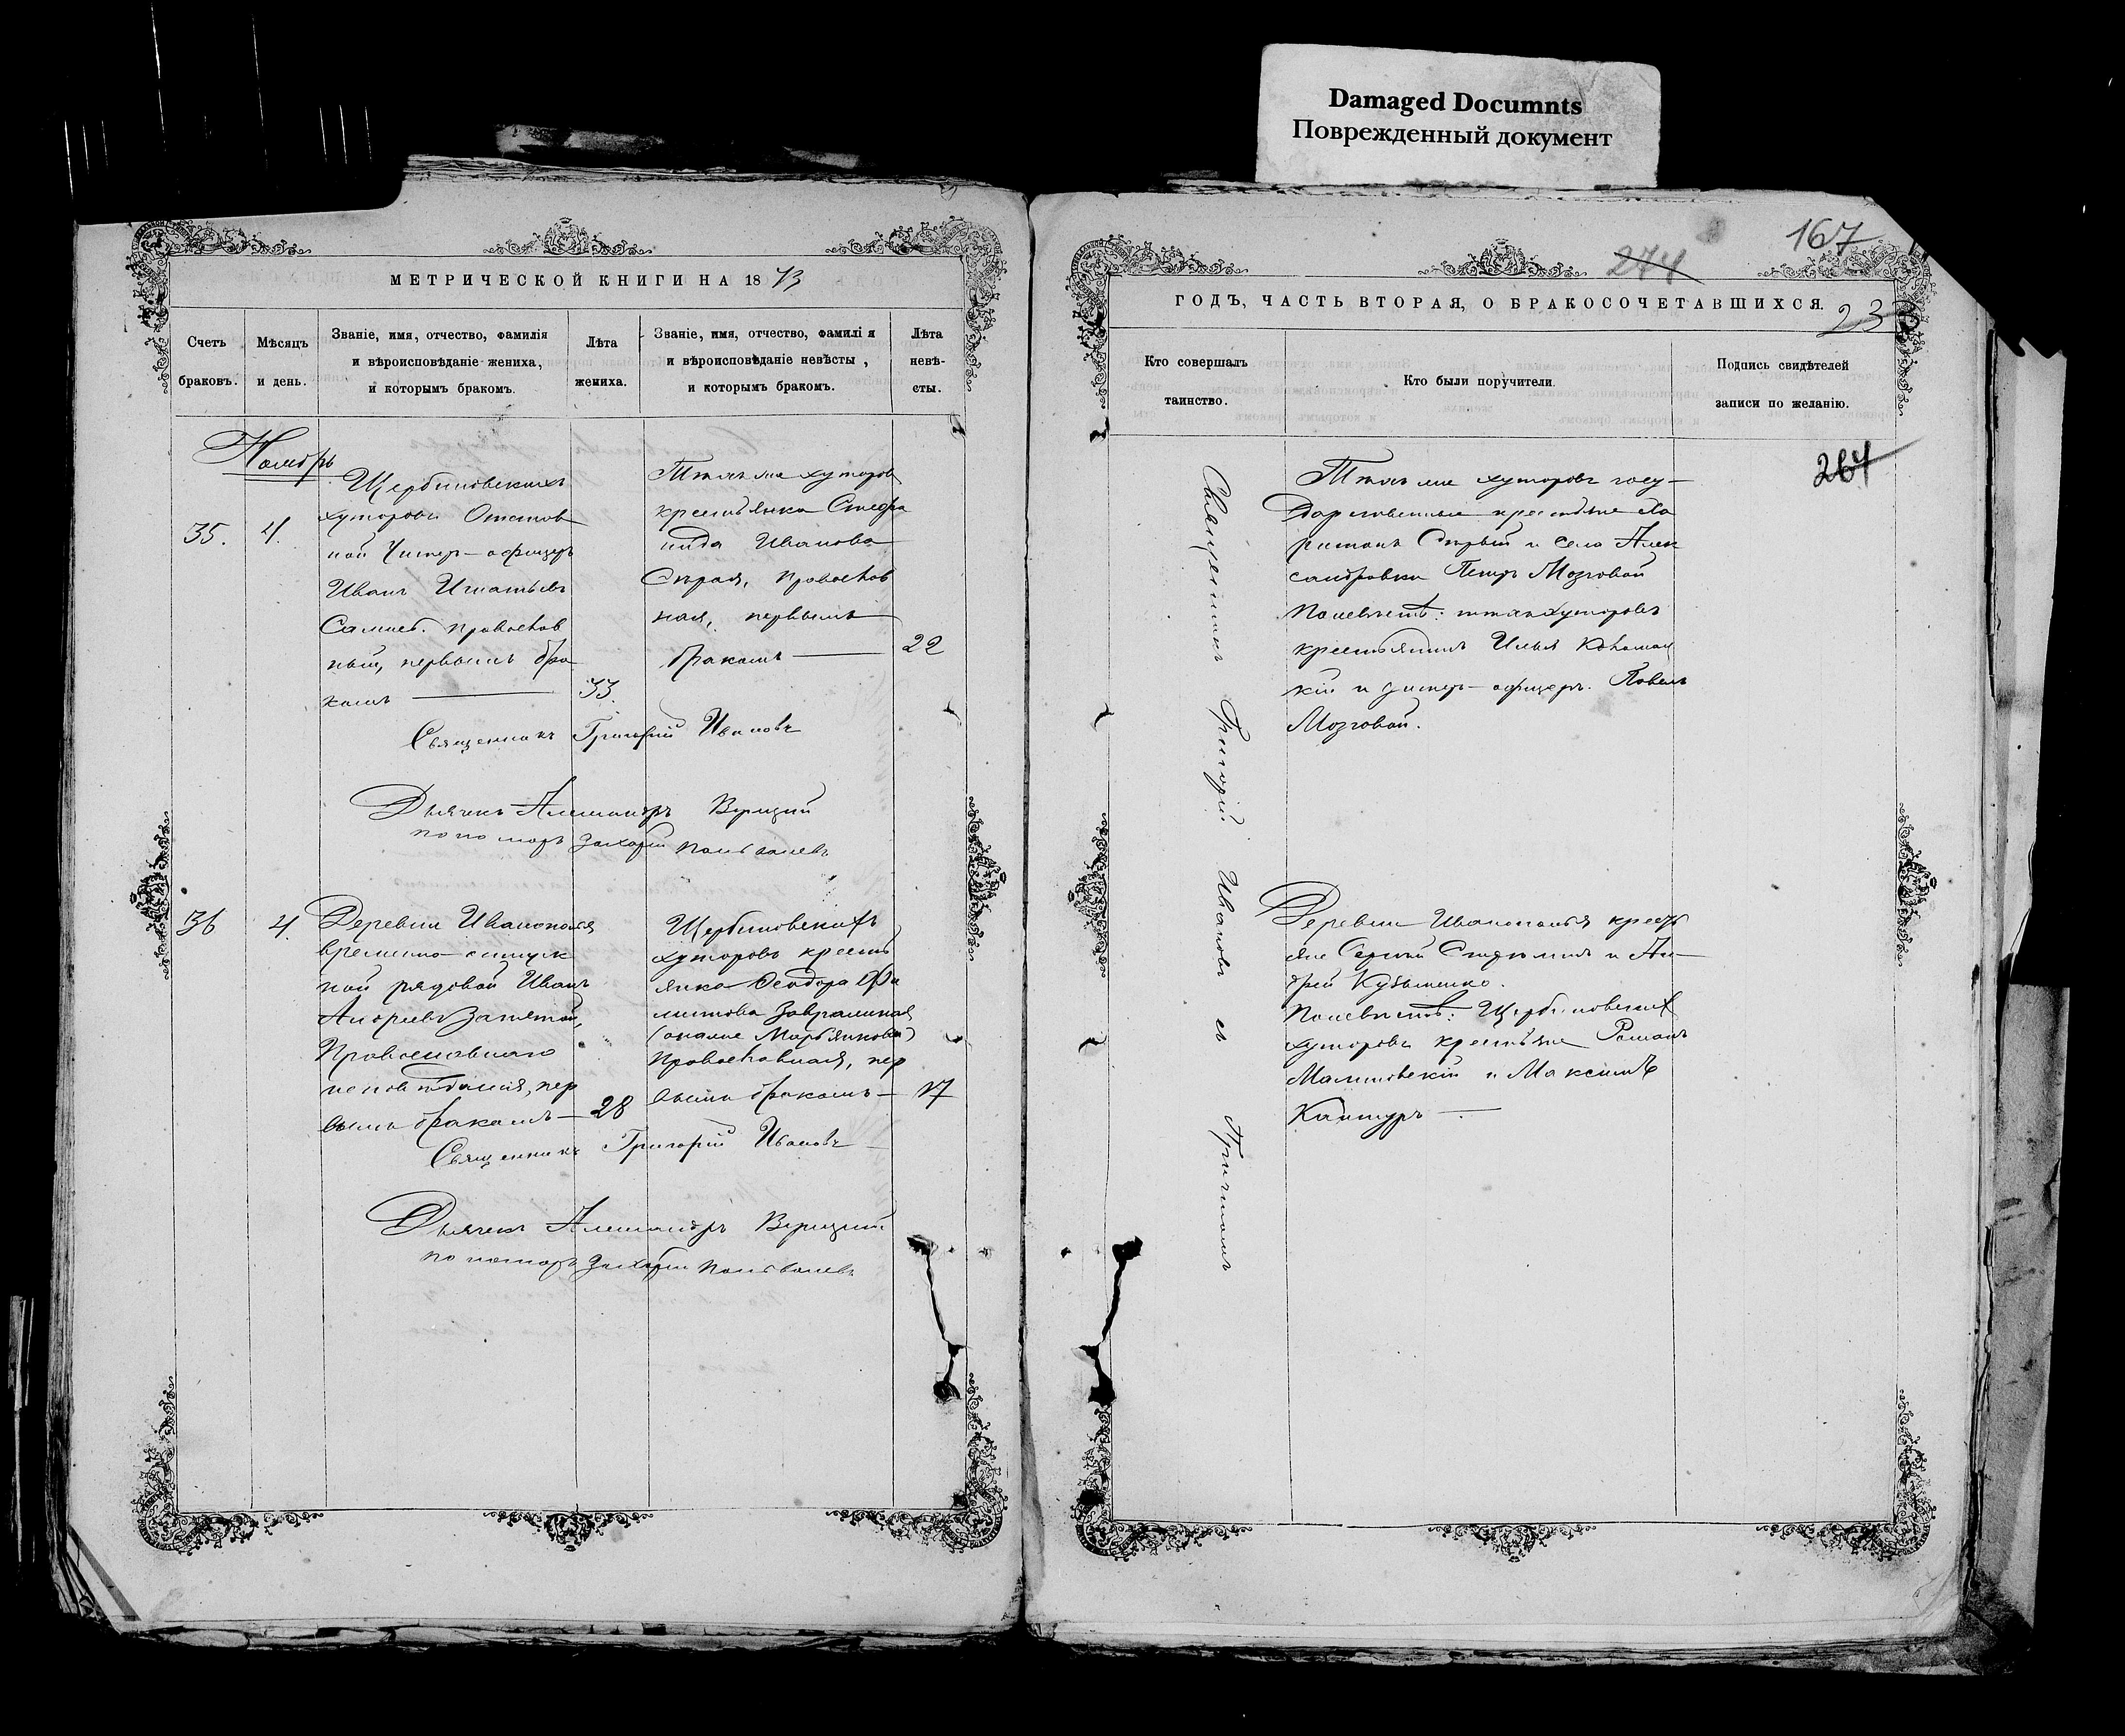 Damaged Documnts
Поврежденный документ
МЕТРИЧЕСКОЙ КНИГИ НА 1873
Счетъ браковъ.
Мѣсяцъ и день.
Званіе, имя, отчество, фамилія
и вѣроисповѣданіе жениха,
и которымъ бракомъ.
Лѣта
жениха.
Званіе, имя, отчество, фамилі я
и вѣроисповѣданіе невѣсты ,
и которымъ бракомъ.
Лѣта
невѣ-
сты.
Ноябрь
35.
4.
Щербиновскихъ
хуторовъ Отстав
ной Унтер-офицеръ
Иванъ Игнатьевъ
православ
ный, первымъ бра
комъ
33.
Тѣхъ же хуторовъ
крестьянка Стефа
нида Иванова
Сѣрая, православ
ная, первымъ
бракомъ
22
Священникъ Григорій Ивановъ
Дьячекъ Александръ
пономарь Захарій
36
4.
Деревни Иванополя
временно-отпуск
ной рядовой Иванъ
Андреевъ
Православнаго
исповѣданія, пер
вымъ бракомъ
28
Щербиновскихъ
хуторовъ кресть
янка Феодора Фи
липова
православная, пер
вымъ бракомъ
17
Священникъ Григорій Ивановъ
Дьячекъ Александръ
пономарь Захарій
167
274
ГОДЪ, ЧАСТЬ ВТОРАЯ, О БРАКОСОЧЕТАВШИХСЯ.
23
Кто совершалъ
таинство.
Кто были поручители.
Подпись свидѣтелей
записи по желанію.
264
Священникъ Григорій Ивановъ съ Причтомъ
Тѣхъ же хуторовъ госу-
дарственные крестьяне Ха
ритонъ Сѣрый и села Алек
сандровки Петръ Мозговой
По невѣстѣ: тѣхъ хуторовъ
крестьянинъ Илья
кій и унтер-офицеръ Павелъ
Мозговой.
Деревни Иванополья кресть
яне Сергій и Ан-
дрей Кузьменко.
По невѣстѣ: Щербиновскихъ
хуторовъ крестьяне Романъ
Малиновскій и Максимъ
Кантуръ